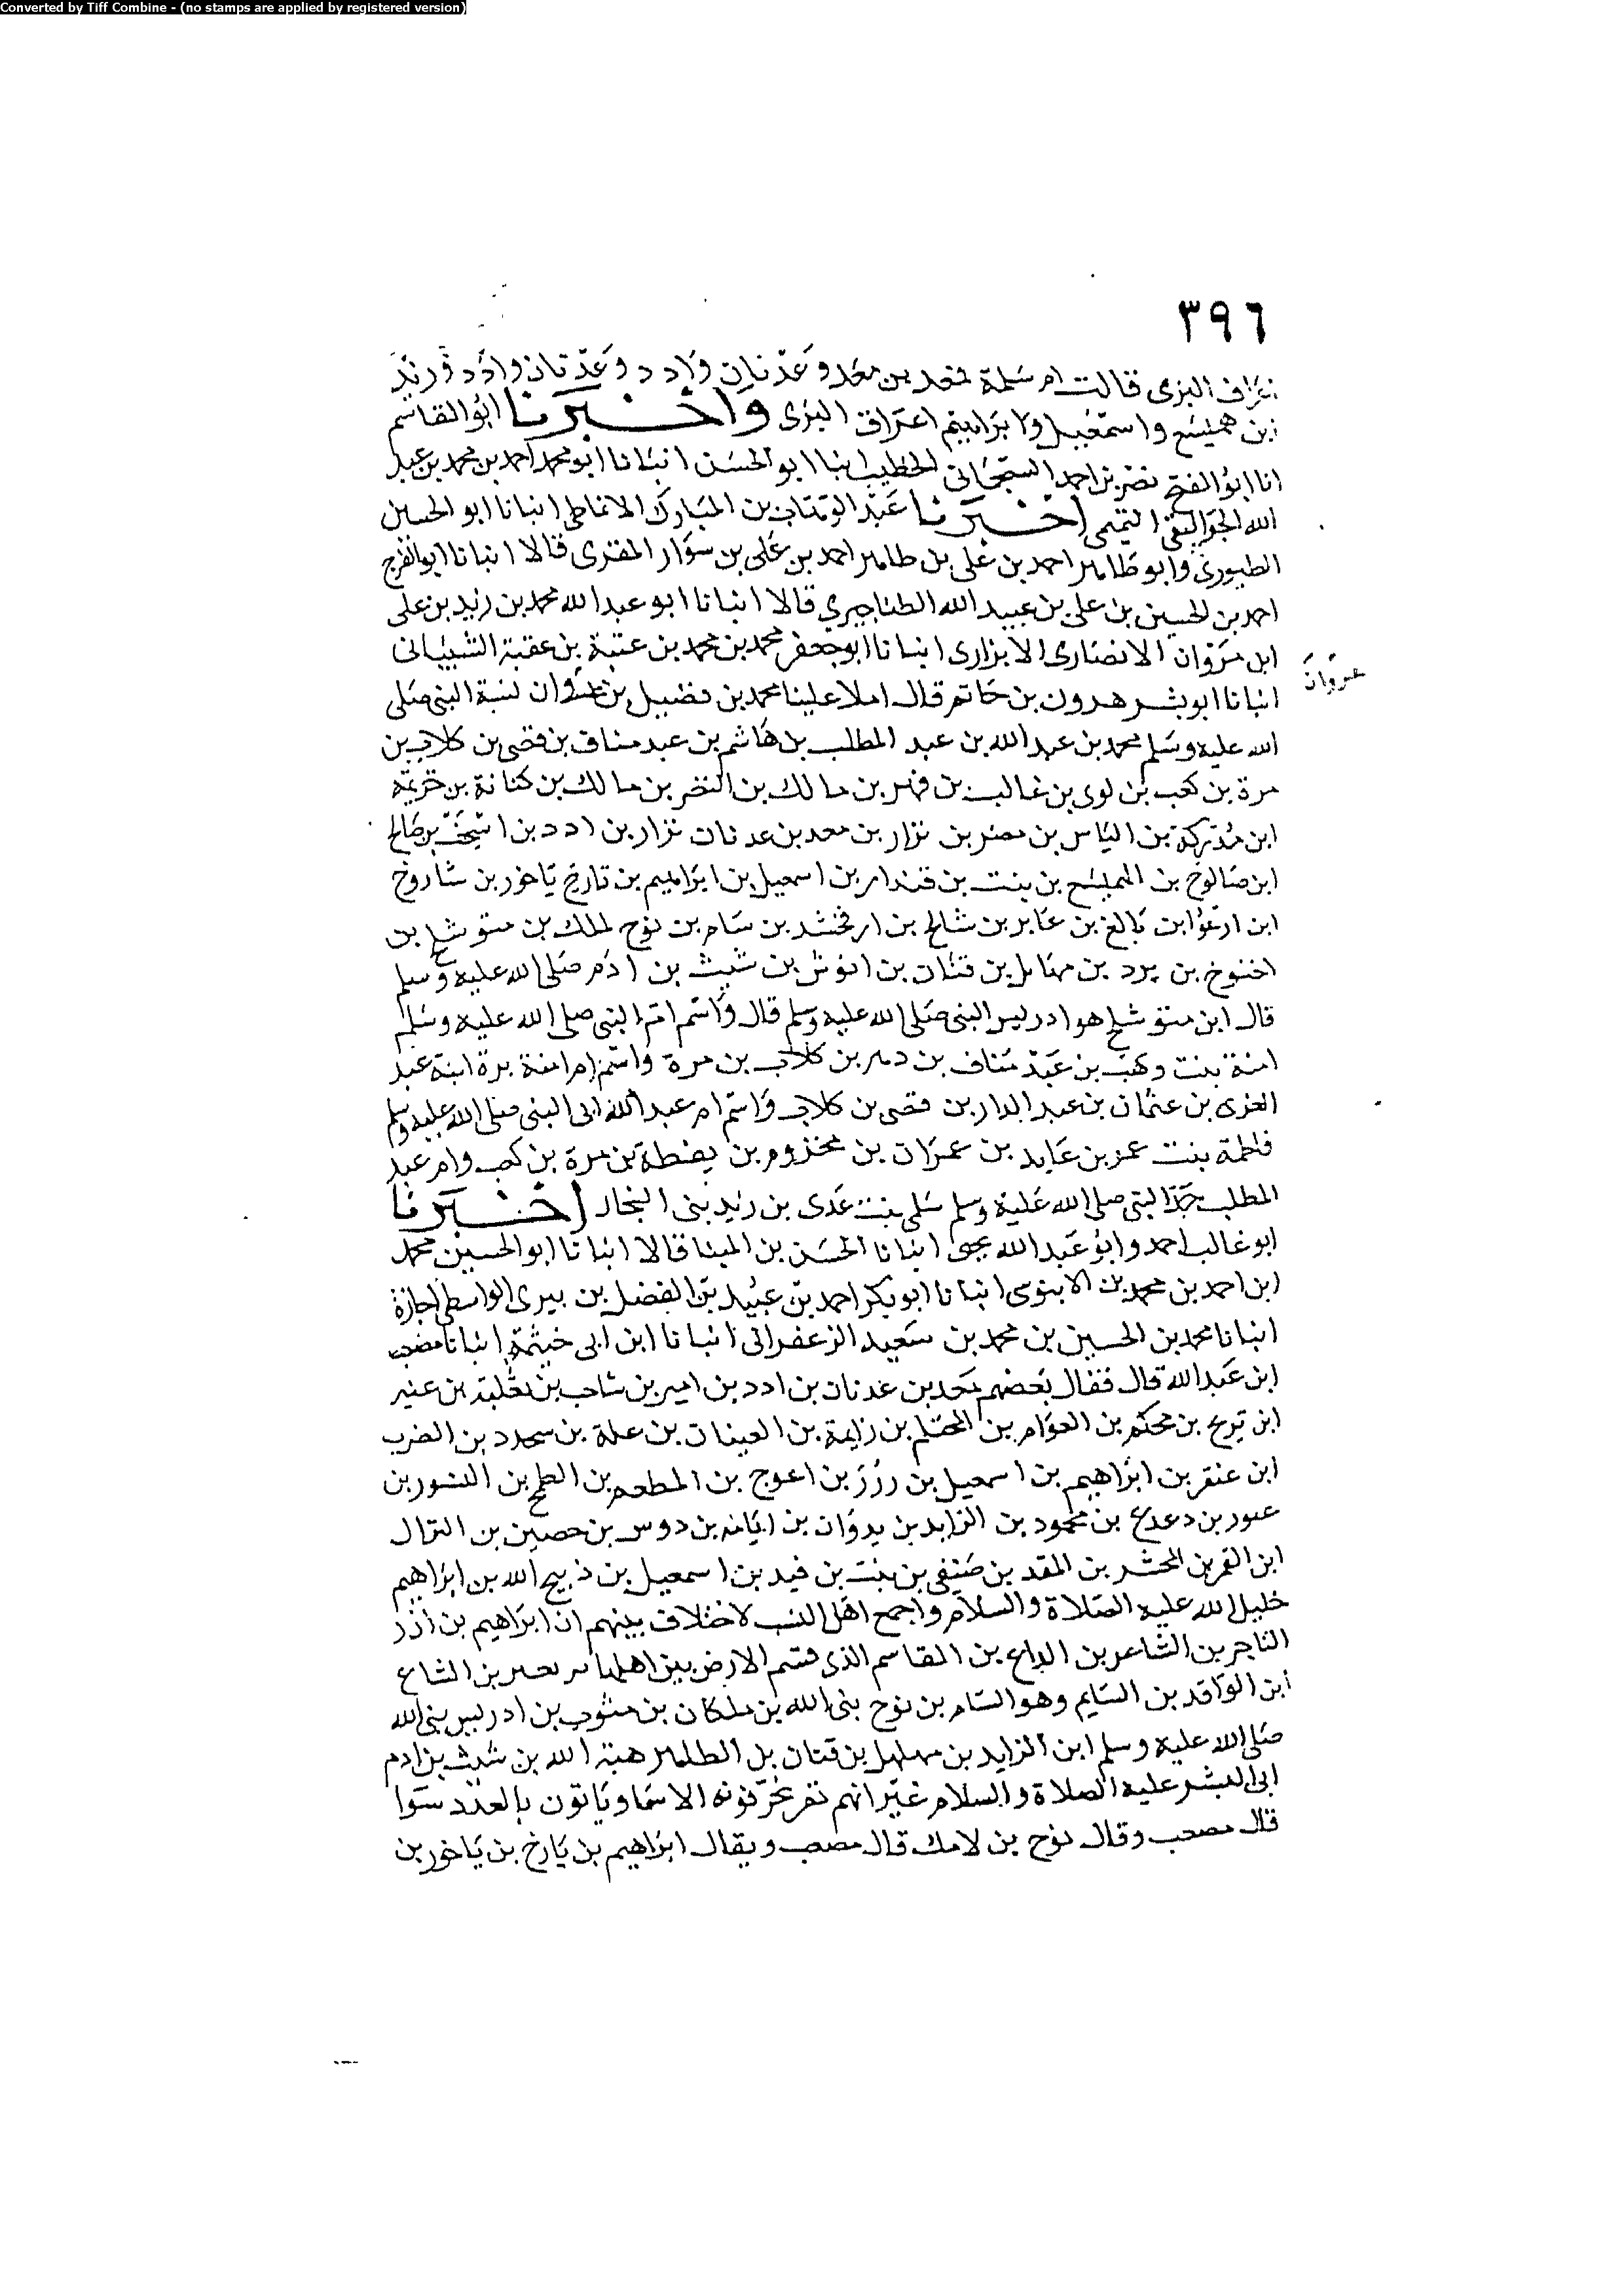 Converted by Tiff Combine - (no stamps are applied by registered version)
٣٩٦
اعراق الثرى قالت ام سلمة فمعد بن معد وعدنان وادد وعدنان وادد وزند
ابن هميسع واسمعيل ولا براهيم اعراق الثرى واخبرنا ابو القاسم
انا ابو الفتح نصر بن احمد الخطيب انبا ابو الحسن انبانا ابو محمد احمد بن محمد بن عبد
الله الجواليقي التيمى اخبرنا عبد الوهاب بن المبارك الانماطى انبانا ابو الحسين
الطيورى وابو طاهر احمد بن على بن طاهر احمد بن على بن سوار المقرى قالا انبانا ابو الفرج
احمد بن الحسين بن على بن عبيد الله الطناجيري قالا انبانا ابو عبد الله محمد بن زيد بن على
ابن مروان الانصارى الابزارى انبانا ابو جعفر محمد بن محمد بن عتبة بن عقبة الشيبانى
عزوان
انبانا ابو بشر هرون بن حاتم قال املا علينا محمد بن فضيل بن عزوان نسبة النبى صلى
الله عليه وسلم محمد بن عبد الله بن عبد المطلب بن هاشم بن عبد مناف بن قصى بن كلاب بن
مرة بن كعب بن لوى بن غالب بن فهر بن مالك بن النضر بن مالك بن كنانة بن خزيمة
ابن مدركة بن الياس بن مضر بن نزار بن معد بن عدنان نزار بن ادد بن اشجب بن صالح
ابن صالوخ بن الهميسع بن بنت بن قندار بن اسمعيل بن ابراهيم بن تارخ ياخور بن شاروخ
ابن ارغوا بن بالغ بن عابر بن شالخ بن ارفخشد بن سام بن نوح لملك بن متوشلخ بن
اخنوخ بن يرد بن مهايل بن قنان بن انوش بن شيث بن ادم صلى الله عليه وسلم
قال ابن متوشلح هو ادريس النبى صلى الله عليه وسلم قال واسم ام النبى صلى الله عليه وسلم
امنة بنت وهب بن عبد مناف بن دهر بن كلاب بن مرة واسم ام امنة برة ابنة عبد
العزى بن عثمان بن عبد الدار بن قصى بن كلاب واسم ام عبد الله ابى النبى صلى الله عليه وسلم
فاطمة بنت عمر بن عايد بن عمران بن مخزوم بن يقظة بن مرة بن كعب وام عبد
المطلب جد النبى صلى الله عليه وسلم سلمى بنت عدى بن زيد بنى النجار اخبرنا
ابو غالب احمد وابو عبد الله يحيى انبانا الحسن بن البنا قالا انبانا ابو الحسين محمد
ابن احمد بن محمد بن الابنوسى انبانا ابو بكر احمد بن عبيد بن الفضل بن بيرى الواسطى اجازة
انبانا محمد بن الحسين بن محمد بن سعيد الزعفرانى انبانا ابن ابى خيثمة انبانا مصعب
ابن عبد الله قال فقال بعضهم معد بن عدنان بن ادد بن امير بن شاحب بن ثعلبة بن عنبر
ابن تريح بن محكم بن العوام بن المحتلم بن زايمة بن العينان بن علة بن سحدد بن الضرب
ابن عنقر بن ابراهيم بن اسمعيل بن رزز بن اعوج بن المطعم بن الطمح بن النسور بن
عبور بن دعدع بن محمود بن الزايد بن يدوان بن ايامه بن دوس بن حصين بن النزال
ابن القمر بن المحشر بن المقد بن صنفى بن بنت بن قيد بن اسمعيل بن ذبيح الله بن ابراهيم
خليل الله عليه الصلاة والسلام واجمع اهل النسب لا ختلاف بينهم ان ابراهيم بن ازر
الناجر بن الشاعر بن الداع بن القاسم الذى قسم الارض بين اهلها بن الشاع
ابن الواقد بن السايم وهو السام بن نوح بنى الله بن ملكان بن مثوب بن ادريس بنى الله
صلى الله عليه وسلم ابن الزايد بن مهلهل بن قنان بن الطاهر هبة الله بن شيث بن ادم
ابى البشر عليه الصلاة والسلام غير انهم نفر يحرفونه الاسما وياتون بالعدد سوا
قال مصعب وقال نوح بن لامك قال مصعب ويقال ابراهيم بن يارخ بن ياخور بن